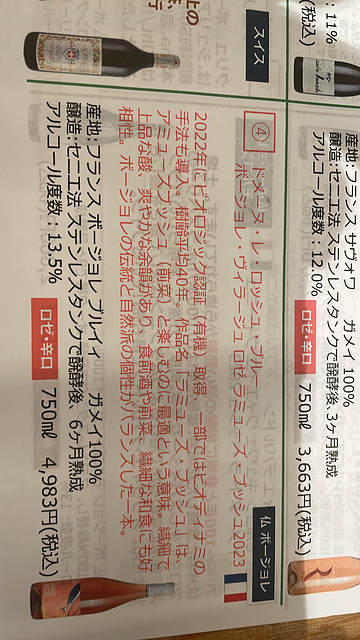 : 11%
(税込)
スイス
産地:フランス サヴォワ ガメイ 100%
醸造:セニエ法 ステンレスタンクで醗酵後、3ヶ月熟成
アルコール度数:12.0%
ロゼ・辛口 750㎖ 3,663円(税込)
仏 ボージョレ
④ ドメーヌ・レ・ロッシュ・ブルー
ボージョレ・ヴィラージュ ロゼ ラミューズ・ブッシュ2023
2022年にビオロジック認証(有機)取得、一部ではビオディナミの
手法も導入。樹齢平均40年。作品名「ラミューズ・ブッシュ」は、
アミューズブッシュ(前菜)と楽しむのに最適という意味。繊細で
上品な酸、爽やかな余韻があり、食前酒や前菜、繊細な和食にも好
相性。ボージョレの伝統と自然派の個性がバランスした一本。
産地:フランス ボージョレ ブルイィ ガメイ100%
醸造:セニエ法 ステンレスタンクで醗酵後、6ヶ月熟成
アルコール度数:13.5%
ロゼ・辛口 750㎖ 4,983円(税込)